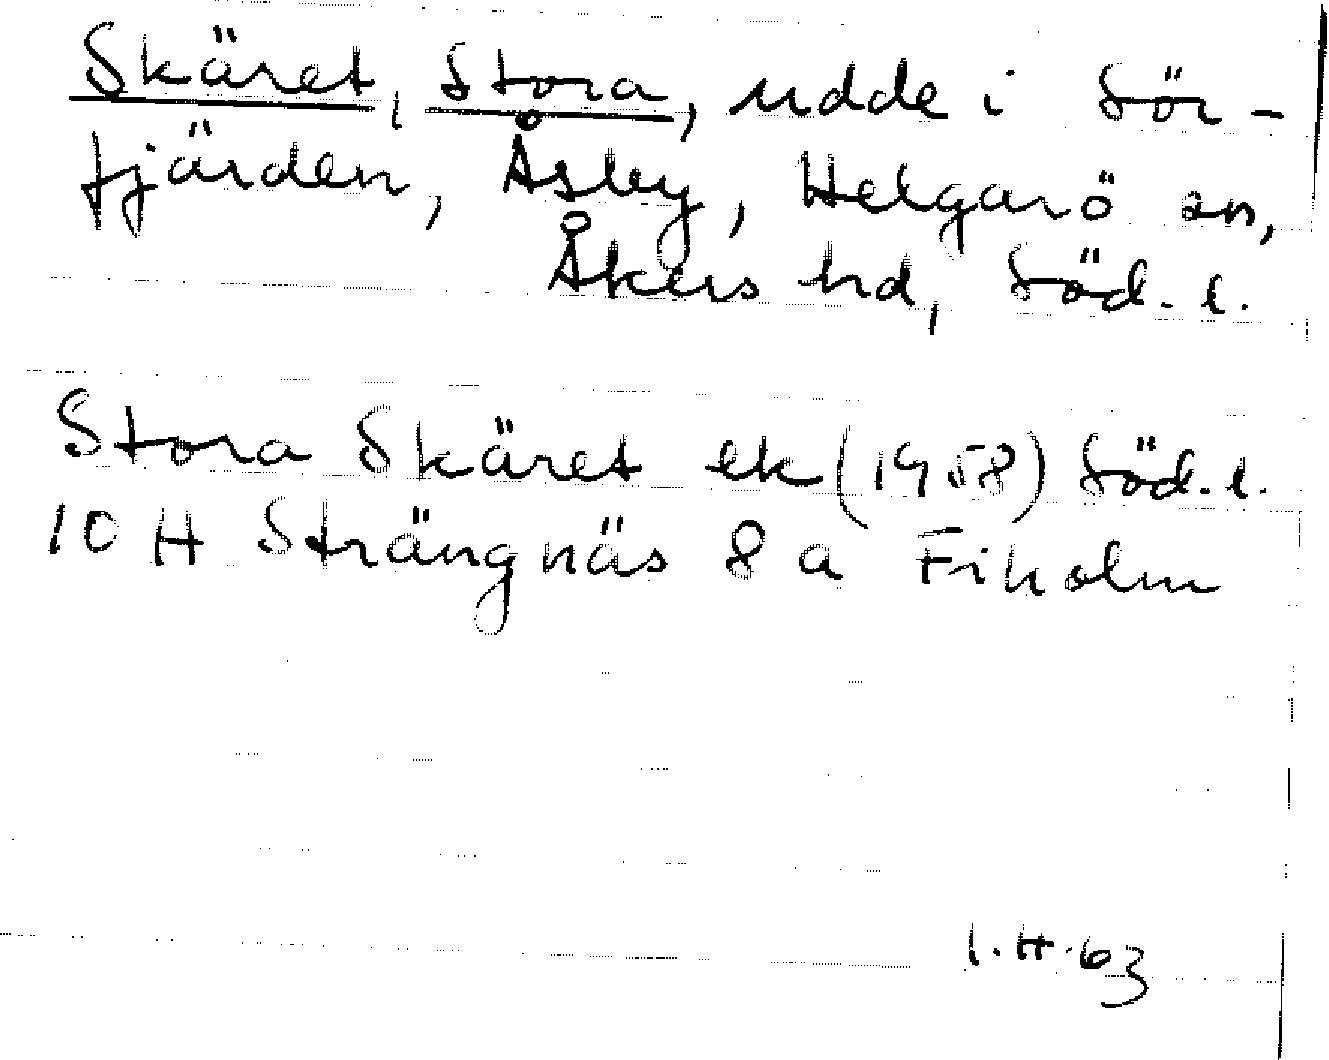 Skäret, Stora, udde i Sör-
fjärden, Åsby, Helgarö sn,
Åkers hd, Söd. l.
Stora Skäret ek (1958) Söd. l.
10 H Strängnäs 8 a Fiholm
I.H.63